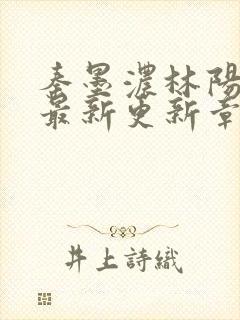 秦墨濃林陽
最新更新章
井上詩織